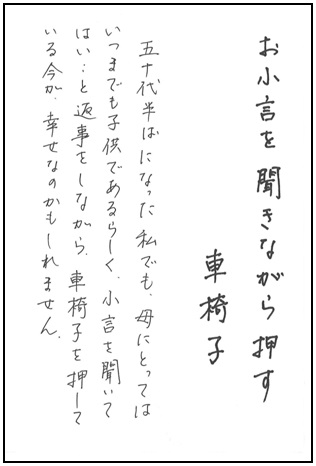 お小言を聞きながら押す
車椅子
五十代半ばになった私でも、母にとっては
いつまでも子供であるらしく、小言を聞いて
はい…と返事をしながら、車椅子を押して
いる今が、幸せなのかもしれません。